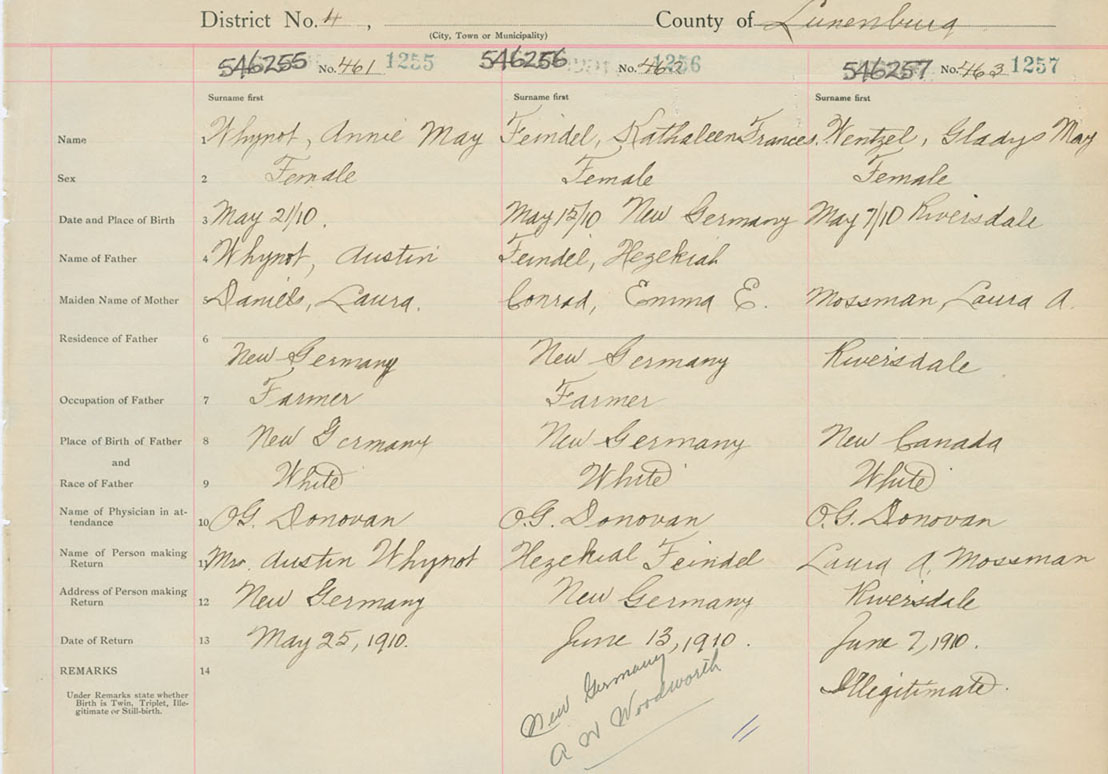 District No. 4, County of Lunenburg
(City, Town or Municipality)
546255 No. 461 1255 546256 No. 462 1256 546257 No. 463 1257
Surname first Surname first Surname first
Name 1 Whynot, Annie May Feindel, Kathaleen Frances. Wentzel, Gladys May
Sex 2 Female Female Female
Date and Place of Birth 3 May 21/10. May 15/10 New Germany May 7/10 Riversdale
Name of Father 4 Whynot, Austin Feindel, Hezekiah
Maiden Name of Mother 5 Daniels, Laura. Conrad, Emma E. Mossman, Laura A.
Residence of Father 6
New Germany New Germany Riversdale
Occupation of Father 7 Farmer Farmer
Place of Birth of Father 8 New Germany New Germany New Canada
and
Race of Father 9 White White White
Name of Physician in at-
tendance 10 O.G. Donovan O.G. Donovan O.G. Donovan
Name of Person making
Return 11 Mrs. Austin Whynot Hezekiah Feindel Laura A. Mossman
Address of Person making
Return 12 New Germany New Germany Riversdale
Date of Return 13 May 25, 1910. June 13, 1910. June 7, 1910.
REMARKS 14 Illegitimate.
Under Remarks state whether
Birth is Twin, Triplet, Ille-
gitimate or Still-birth.
New Germany
A W Woodworth